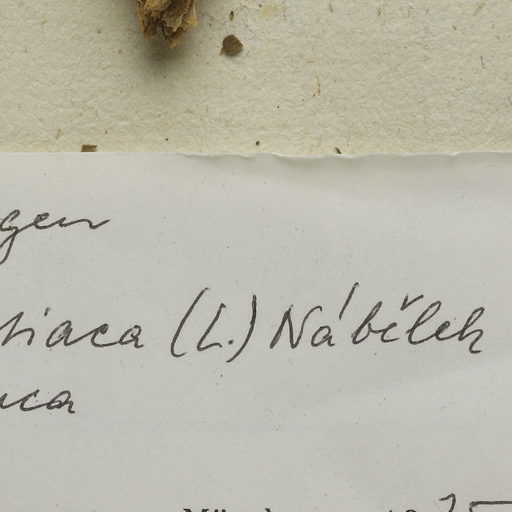 gen
siaca (L.) Nábělek
uca